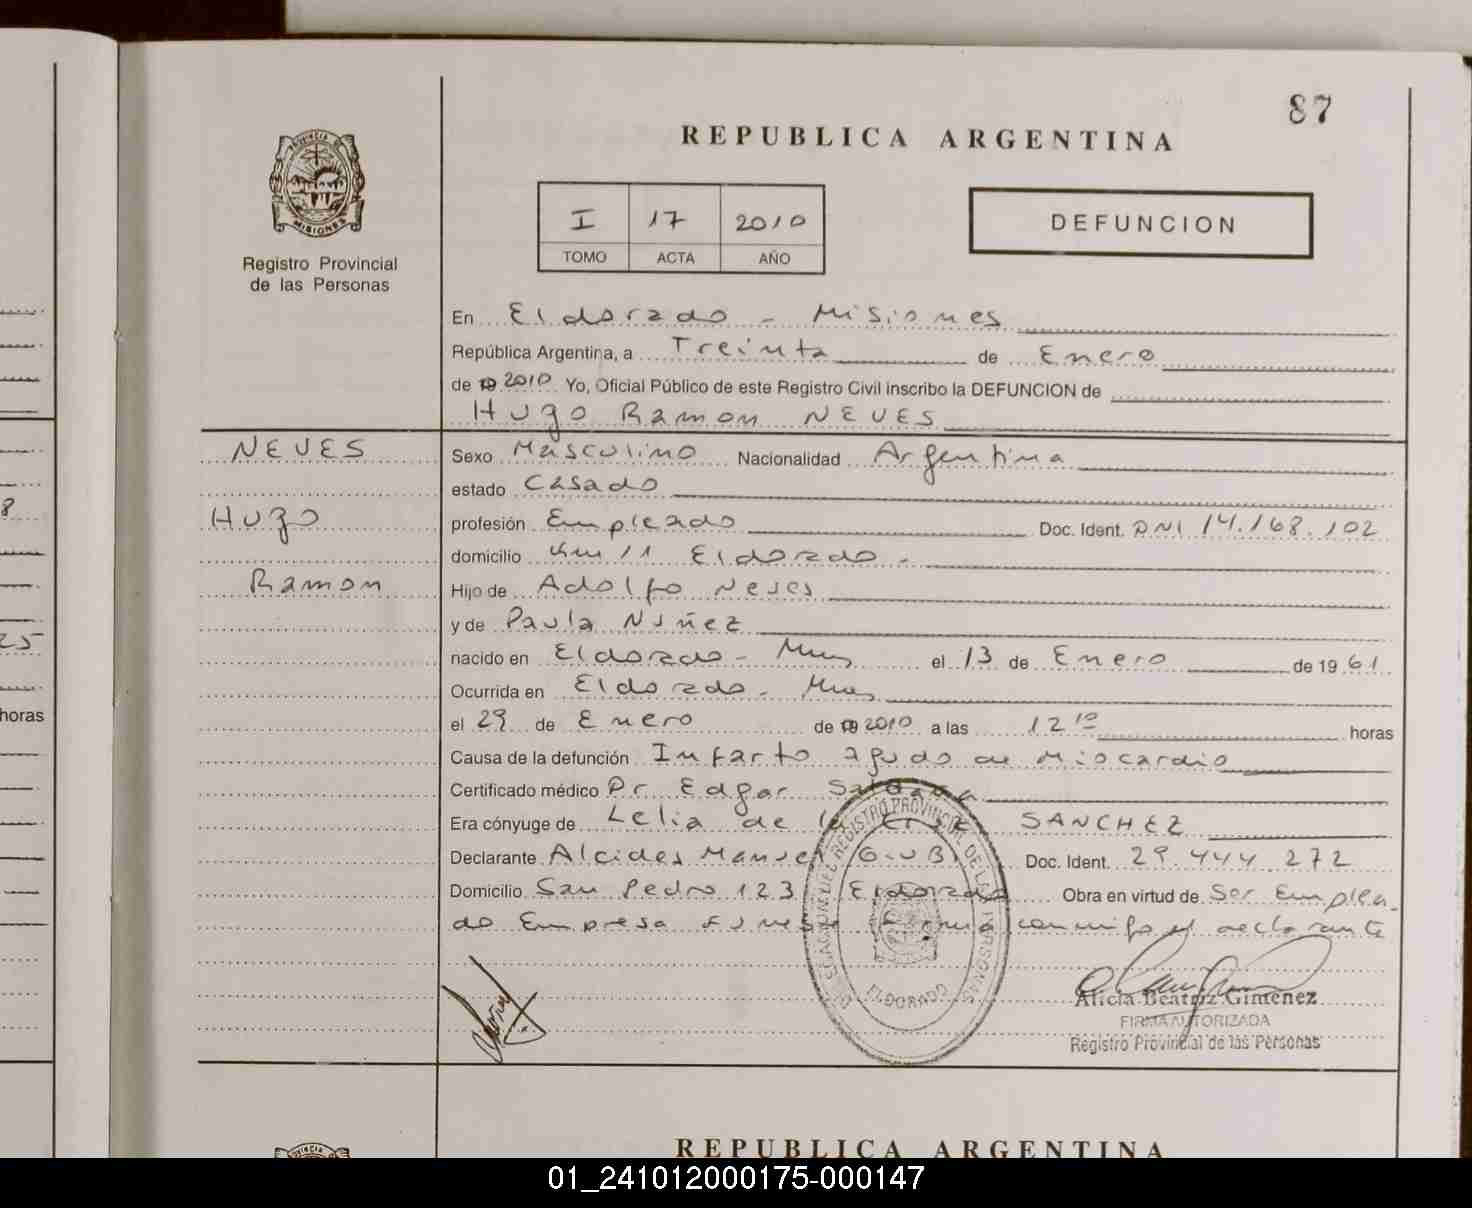 87
REPUBLICA ARGENTINA
PROVINCIA DE
MISIONES
Registro Provincial
de las Personas
I 17 2010
TOMO ACTA AÑO
DEFUNCION
En Eldorado - Misiones
República Argentina, a Treinta de Enero
de 2010 Yo, Oficial Público de este Registro Civil inscribo la DEFUNCION de
Hugo Ramon NEVES
NEVES
Hugo
Ramon
Sexo Masculino Nacionalidad Argentina
estado Casado
profesión Empleado Doc. Ident. DNI 14.168.102
domicilio Km 11 Eldorado -
Hijo de Adolfo Neves
y de Paula Nuñez
nacido en Eldorado - Mnes el 13 de Enero de 1961
Ocurrida en Eldorado - Mnes
el 29 de Enero de 2010 a las 12 10 horas
Causa de la defunción Infarto agudo de Miocardio
Certificado médico Dr. Edgar
Era cónyuge de Lelia de la Cruz SANCHEZ
Declarante Alcides Manuel Doc. Ident. 29.444.272
Domicilio San Pedro 123 Eldorado Obra en virtud de Ser Emplea-
do Empresa Firma conmigo el declarante
DELEGACION DEL REGISTRO PROVINCIAL DE LAS PERSONAS
ELDORADO
Alicia Beatriz Gimenez
FIRMA AUTORIZADA
Registro Provincial de las Personas
8
25
horas
REPUBLICA ARGENTINA
01_241012000175-000147